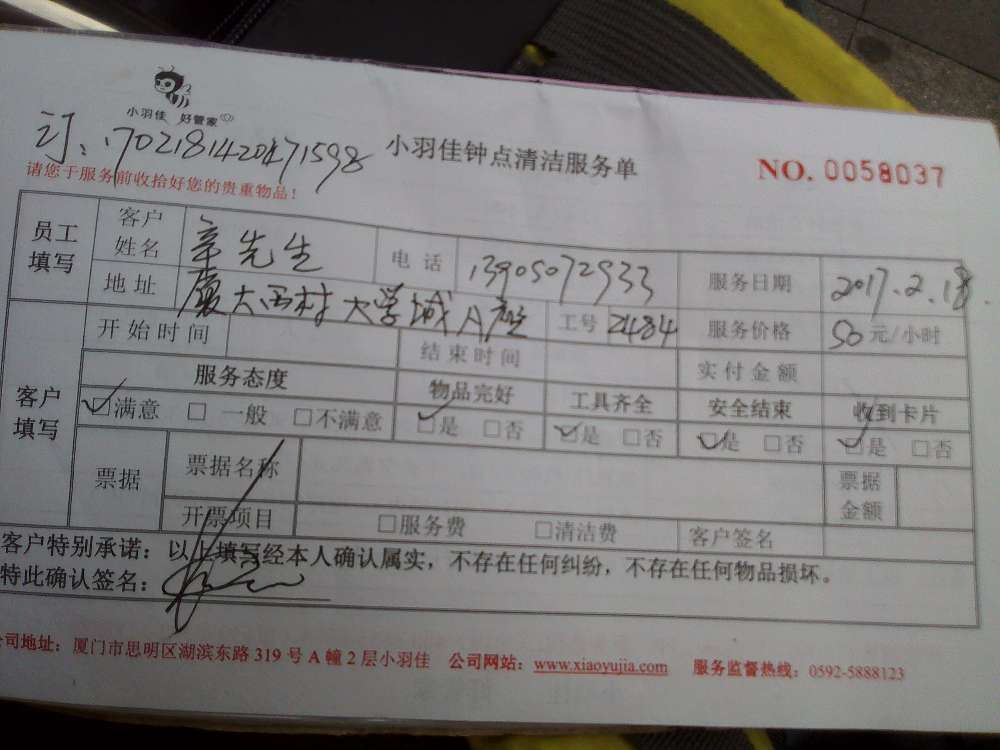 小羽佳 好管家
订:1702181420471598
小羽佳钟点清洁服务单
NO. 0058037
请您于服务前收拾好您的贵重物品！
员工填写 客户姓名 辛先生 电话 13905072933 服务日期 2017.2.18.
地址 厦大西村大学城A座 工号 2484 服务价格 50元/小时
客户填写 开始时间 结束时间 实付金额
服务态度 物品完好 工具齐全 安全结束 收到卡片
☑满意 □一般 □不满意 ☑是 □否 ☑是 □否 ☑是 □否 ☑是 □否
票据 票据名称 票据金额
开票项目 □服务费 □清洁费 客户签名
客户特别承诺：以上填写经本人确认属实，不存在任何纠纷，不存在任何物品损坏。
特此确认签名：
公司地址：厦门市思明区湖滨东路319号A幢2层小羽佳 公司网站：www.xiaoyujia.com 服务监督热线：0592-5888123